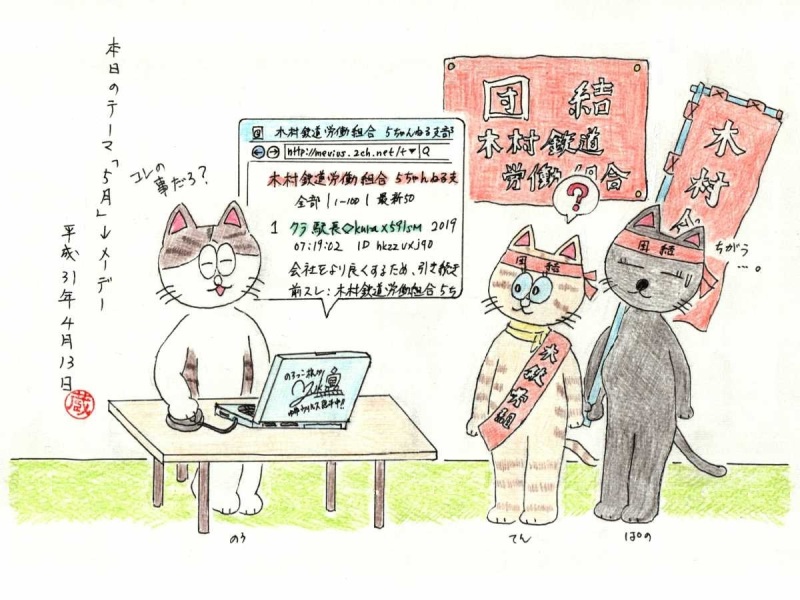 本日のテーマ「5月」→メーデー
平成31年4月13日
蔵
コレの
事だろ?
団 木村鉄道労働組合 5ちゃんねる支部
http://mevius.2ch.net/t
木村鉄道労働組合 5ちゃんねる支
全部 | 1-100 | 最新50
1 クラ駅長◇ 2019
07:19:02 ID
会社をより良くするため、引き続き
前スレ:木村鉄道労働組合 5ち
団結
木村鉄道
労働組合
?
木村
団結
団結
ちがう
…。
のう
てん
ぱの